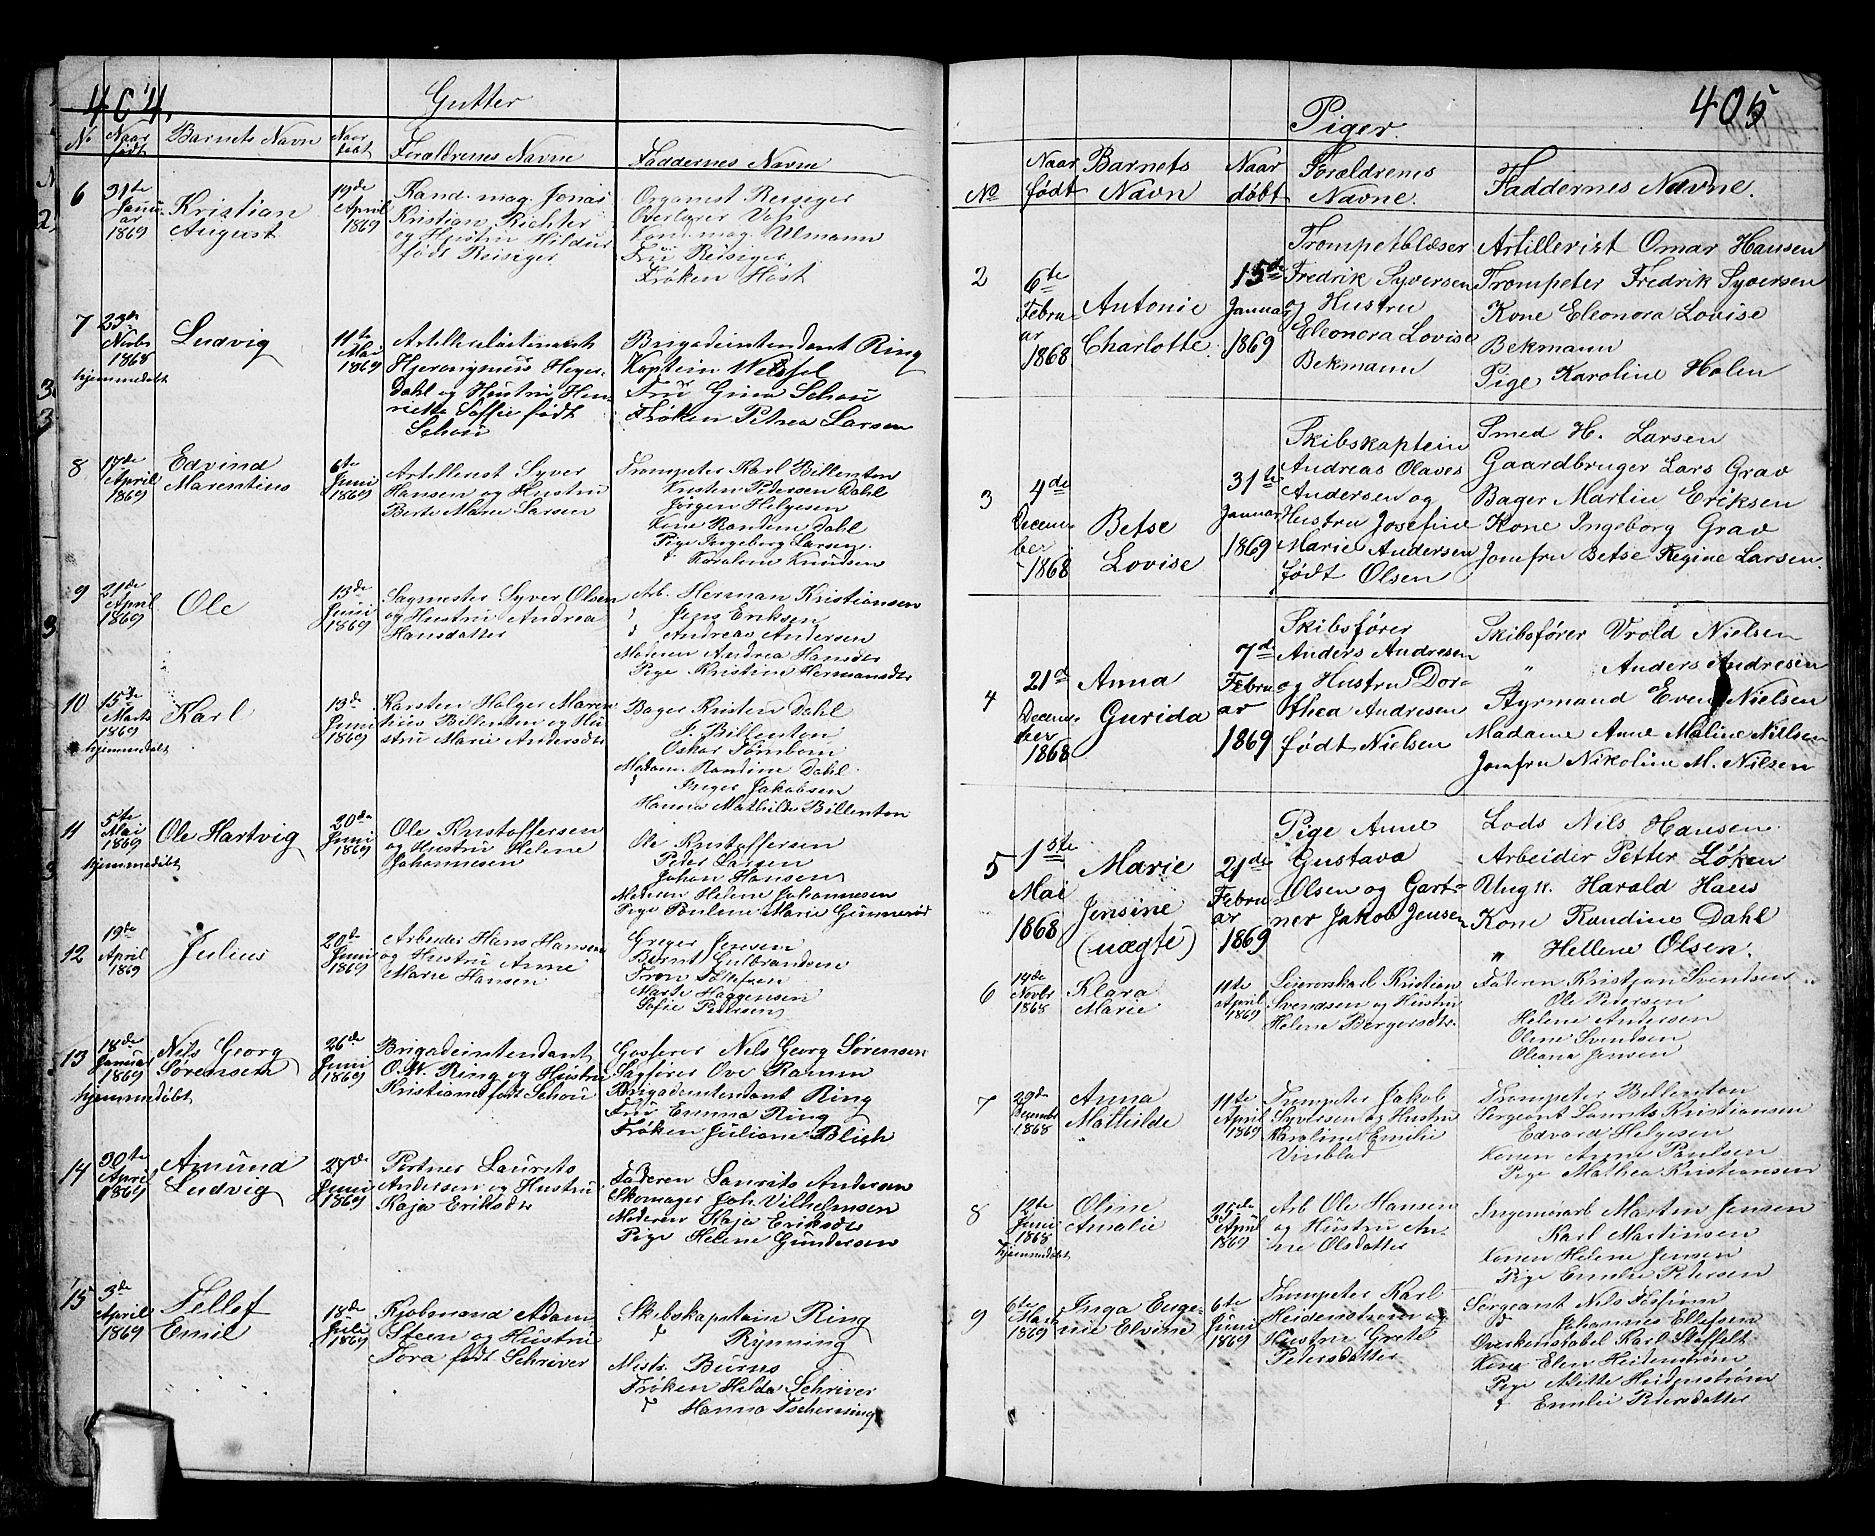 404.
Gutter
No Naar født Barnets Navn Naar døbt Forældrenes Navne Faddernes Navne
6
31te Januar 1869
Kristian
August
19de April 1869
Kand. mag. Jonas
Kristian Richter
og Hustru Hildur
født Reisiger
Organist Reisiger
Overlærer Vafs
Kand. mag. Ulmann
Fru Reisiger
Frøken Høst
7
23de Novbr 1868
hjemmedøbt
Ludvig
11te Mai 1869
Hjeronymus Heyer-
Dahl og Hustru Hen-
riette Soffie født
Schou
Brigadeintendant Ring
Kaptein
Fru Gina Schou
Frøken Petrea Larsen
8
17de April 1869
Edvind
Marentius
6te Juni 1869
Artillerist Syver
Hansen og Hustru
Berte Marie Larsen
Trompeter Karl Billenton
Kristen Pedersen Dahl
Jørgen Helgesen
Kone Randine Dahl
Pige Ingeborg Larsen
" Karoline Knudsen
9
21de April 1869
Ole
13de Juni 1869
Sagmester Syver Olsen
og Hustru Andrea
Hansdatter
Arb. Herman Kristiansen
" Jens Eriksen
" Andreas Andersen
Moderen Andrea Hansdtr
Pige Kristine Hermansdtr
10
15de Marts 1869
hjemmedøbt
Karl
13de Juni 1869
Karsten Holger Maren-
tius Billenton og Hu-
stru Marie Andersdtr
Bager Kristen Dahl
J. Billenton
Oskar Tømbom
Madam Randine Dahl
" Inger Jakobsen
Hanna Mathilde Billenton
11
5te Mai 1869
hjemmedøbt
Ole Hartvig
20de Juni 1869
Ole Kristoffersen
og Hustru Helene
Johannesen
Ole Kristoffersen
Peter Larsen
Johan Hansen
Moderen Helene Johannesen
Pige Pauline Marie Gunnerød
12
19de April 1869
Julius
20de Juni 1869
Arbeider Hans Hansen
og Hustru Anne
Marie Hansen
Greger Jensen
Bernt Gulbrandsen
Tron Tollefsen
Marte Haggensen
Sofie Pettersen
13
18de Januar 1869
hjemmedøbt
Nils Georg
Sørensen
26de Juni 1869
Brigadeintendant
O. W. Ring og Hustru
Kristiane født Schou
Gasforer Nels Georg Sørensen
Sagfører Ove Ramm
Brigadeintendant Ring
Fru Emma Ring
Frøken Juliane Blich
14
30te April 1869
Amund
Ludvig
27de Juni 1869
Portner Laurets
Andersen og Hustru
Kaja Eriksdtr
Faderen Laurits Andersen
Skomager Joh. Vilhelmsen
Moderen Kaja Eriksdtr
Pige Helene Gundersen
15
3de April 1869
Tellef
Emil
18de Juli 1869
Kjøbmand Adam
Steen og Hustru
Tora født Schriver
Skibskaptein Ring
" Rynning
Mestr. Burns
Frøken Helda Schriver
" Hanna Tscherning
405
Piger.
No Naar født Barnets Navn Naar døbt Forældrenes Navne. Faddernes Navne.
2
6te Februar 1868
Antonie
Charlotte.
15de Januar 1869
Trompetblæser
Fredrik Syversen
og Hustru
Eleonora Lovise
Bekmann
Artillerist Omar Hansen
Trompeter Fredrik Syversen
Kone Eleonora Lovise
Bekmann
Pige Karoline Holen
3
4de December 1868
Betse
Lovise
31te Januar 1869
Skibskaptein
Andreas Olaves
Andersen og
Hustru Josefine
Marie Andersen
født Olsen
Smed H. Larsen
Gaardbruger Lars Grav
Bager Martin Eriksen
Kone Ingeborg Grav
Jomfru Betse Regine Larsen.
4
21de December 1868
Anna
Gurida
7de Februar 1869
Skibsfører
Anders Andresen
og Hustru Dor-
thea Andresen
født Nielsen
Skibsfører Vrold Nielsen
" Anders Andresen
Styrmand Even Nielsen
Madame Anne Maline Nielsen
Jomfru Nikoline M. Nilsen
5
1ste Mai 1868
Marie
Jensine
(uægte)
21de Februar 1869
Pige Anne
Gustava
Olsen og Gart-
ner Jakob Jensen
Lods Nils Hansen
Arbeider Petter Løken
Ungk. Harald Hans
Kone Randine Dahl
" Hellene Olsen.
6
14de Novbr 1868
Klara
Marie
11te April 1869
Leierorskarl Kristian
Svendsen og Hustru
Helene Bergersdtr.
Faderen Kristjan Svendsen
Ole Pedersen
Helene Andersen
Oline Svendsen
Oleana Jensen
7
29de December 1868
Anna
Mathilde
11te April 1869
Trompeter Jakob
Syversen og Hustru
Karoline Emilie
Vinblad
Trompeter Billenton
Sergeant Laurets Kristiansen
Edvard Helgesen
Konen Anne Paulsen
Pige Mathea Kristiansen
8
12te Juni 1868
hjemmedøbt
Oline
Amalie
25de April 1869
Arb Ole Hansen
og Hustru An-
ne Olsdatter
Ingeniørarb Martin Jensen
Karl Martinsen
Konen Helene Jensen
Pige Emilie Petersen
9
6te Marts 1869
Inga Euge-
nie Elvine
6te Juni 1869
Trompeter Karl
Heidenstrøm og
Hustru Grete
Petersdatter
Sergeant Nils
" Johannes Ellefsen
Overkonstabel Karl Staffelt
Kone Elen Heidenstrøm
Pige Mitte Heidenstrøm
" Emilie Petersdatter